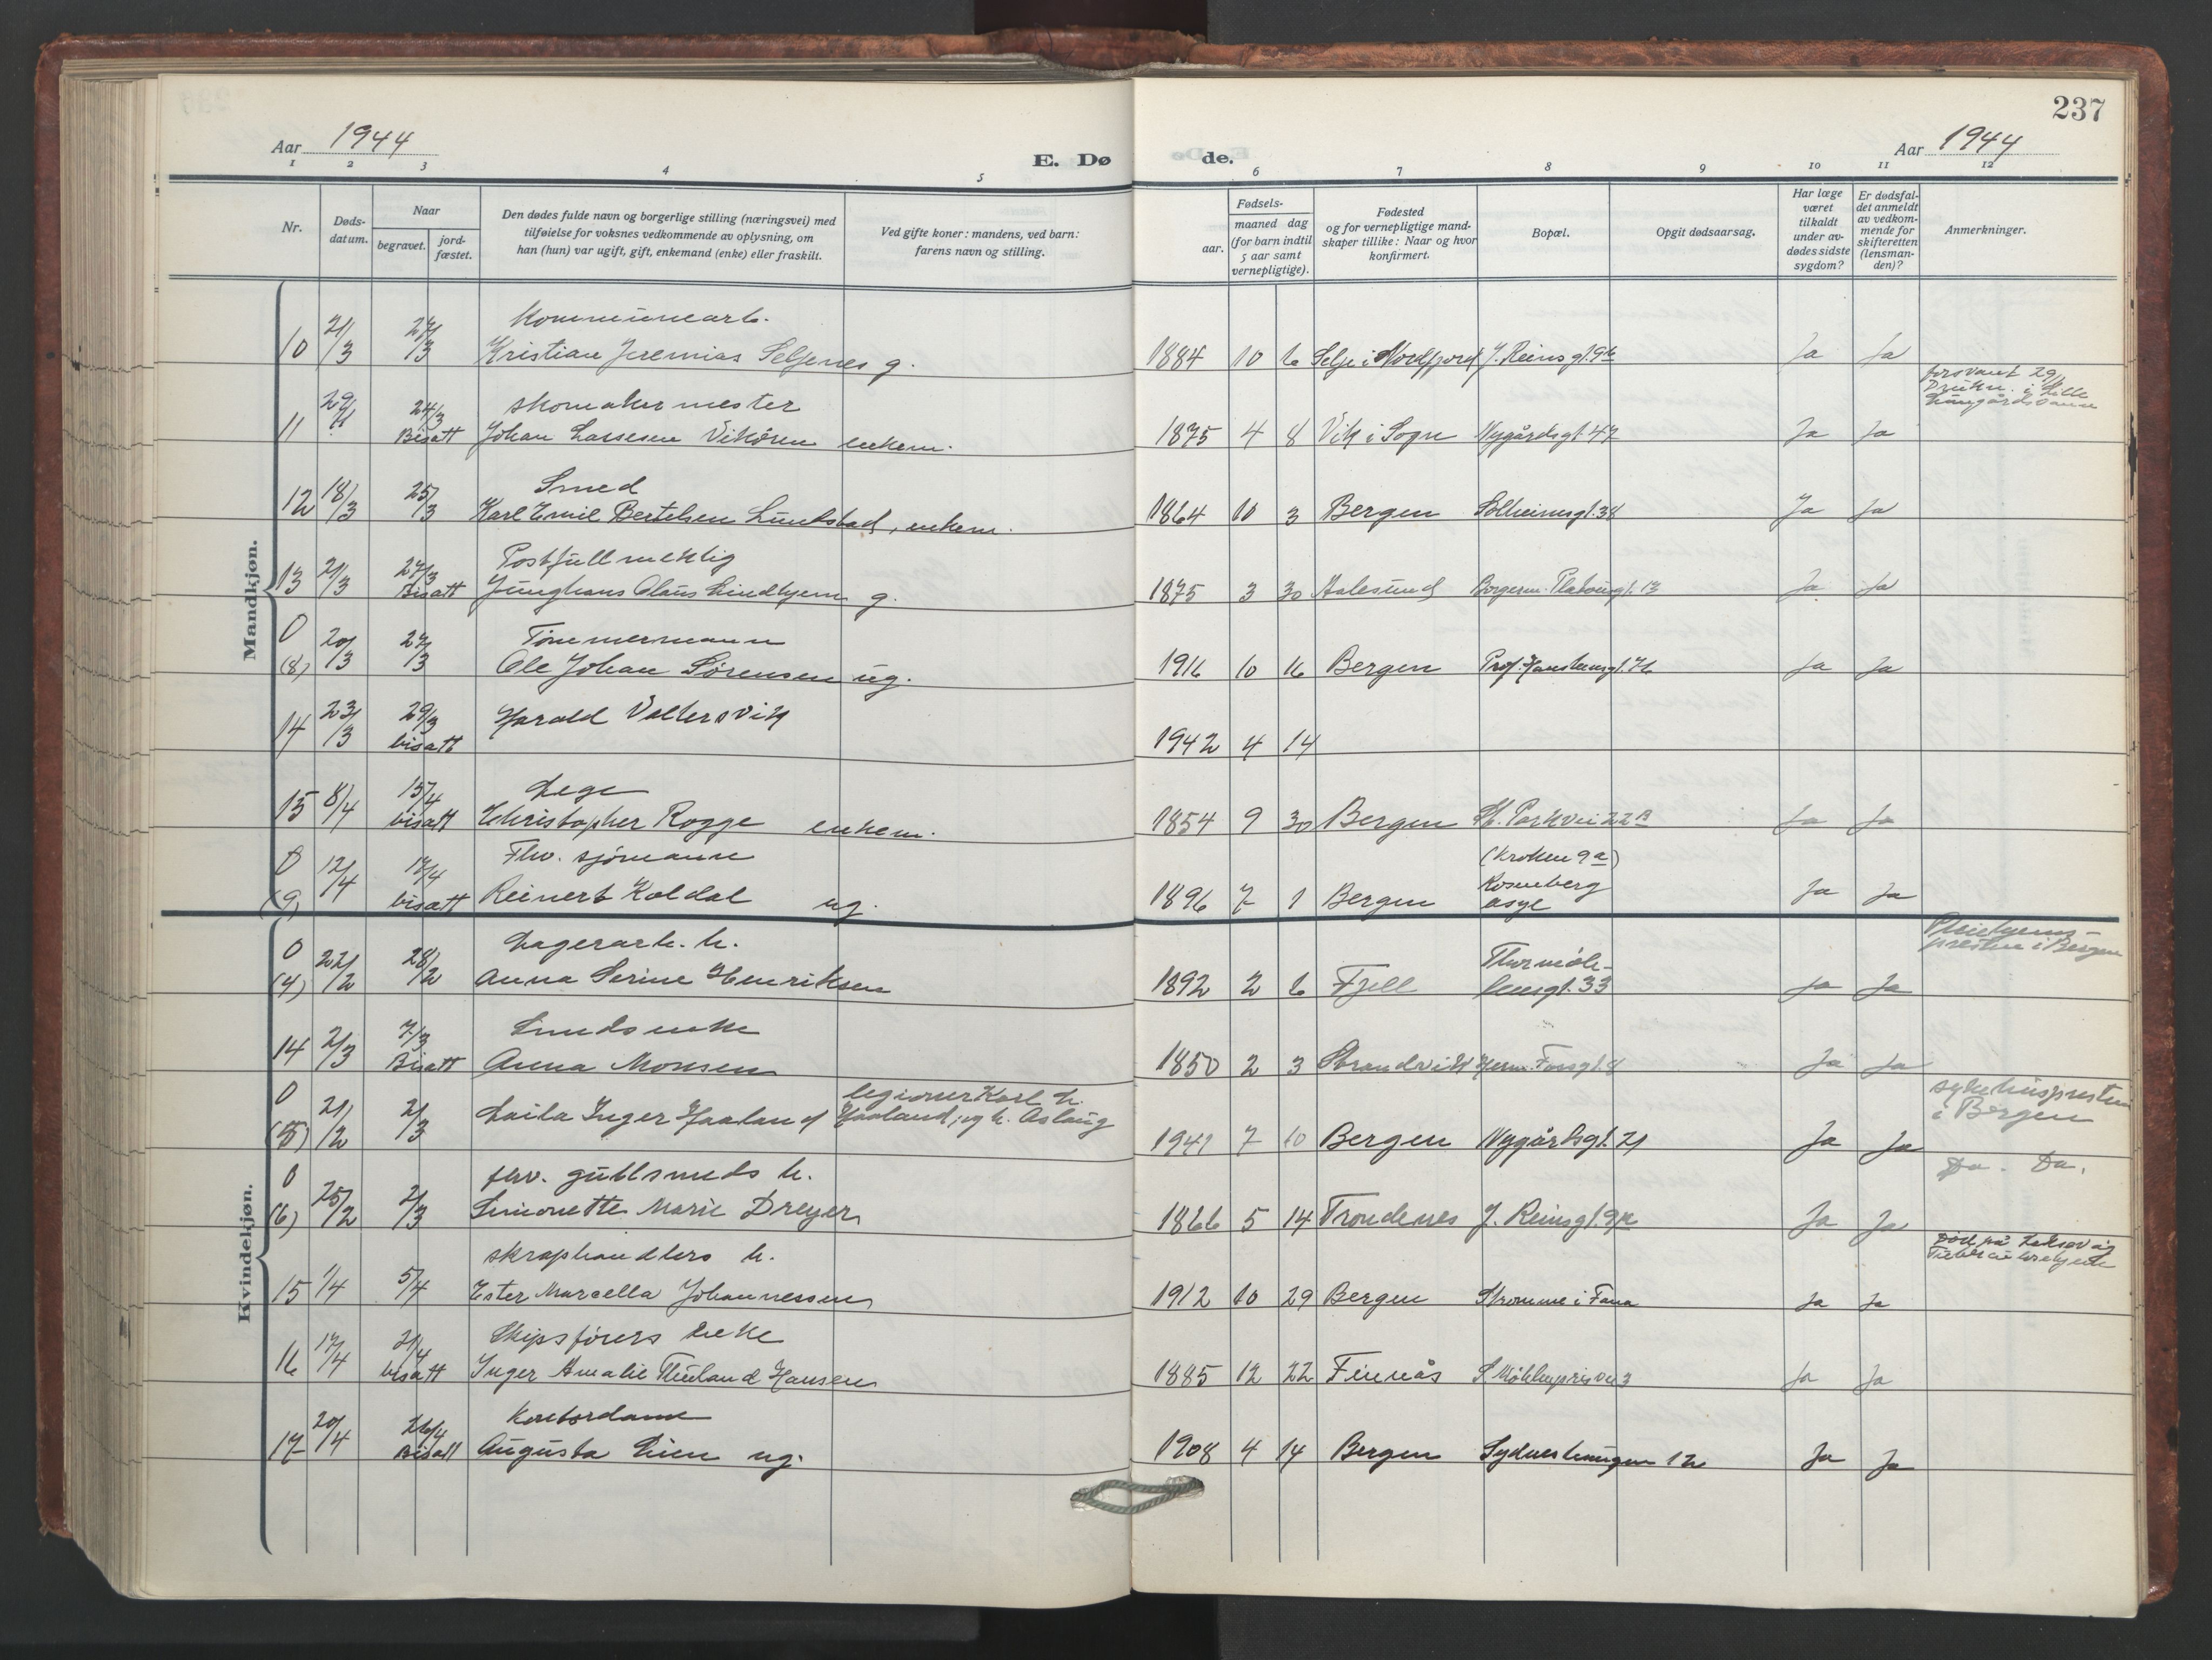 237
Aar 1944
E. Dø
de.
Aar 1944
1 2 3 4 5 6 7 8 9 10 11 12
Nr.
Døds-
datum.
Naar
begravet.
jord-
fæstet.
Den dødes fulde navn og borgerlige stilling (næringsvei) med
tilføielse for voksnes vedkommende av oplysning, om
han (hun) var ugift, gift, enkemand (enke) eller fraskilt.
Ved gifte koner: mandens, ved barn:
farens navn og stilling.
Fødsels-
aar.
maaned dag
(for barn indtil
5 aar samt
vernepligtige).
Fødested
og for vernepligtige mand-
skaper tillike: Naar og hvor
konfirmert.
Bopæl.
Opgit dødsaarsag.
Har læge
været
tilkaldt
under av-
dødes sidste
sygdom?
Er dødsfal-
det anmeldt
av vedkom-
mende for
skifteretten
(lensman-
den)?
Anmerkninger.
Mandkjøn.
Kommunearb.
10 21/3 27/3 Kristian Jeremias Seljenes g. 1884 10 6 Selje i Nordfjord J. Reinsgt. Ja Ja
forsvant
Drukn. i Lille
Lungårdsvann
skomakermester
11 24/3 Bisatt Johan Lassesen Vikören enkem. 1875 4 8 Vik i Sogn Nygårdsgt. 47 Ja Ja
Smed
12 18/3 25/3 Karl Emil Bertelsen enkem. 1864 10 3 Bergen Solheimsgt. 38 Ja Ja
Postfullmektig
13 21/3 27/3 Bisatt Junghans Claus Lindhjem g. 1875 3 30 Aalesund Borgerm. Platougt. 13 Ja Ja
Tömmermann
0 (8) 20/3 27/3 Ole Johan Sörensen ug. 1916 10 16 Bergen Prof. Hansteensgt. Ja Ja
14 23/3 29/3 bisatt Harald Valtersvik 1942 4 14
Lege
15 8/4 15/4 bisatt Christopher Rogge enkem. 1854 9 30 Bergen St. Parkvei 22 B Ja Ja
Fhv. sjömann
(Kroken 9a)
0 (9) 12/4 17/4 bisatt Reinert Koldal ug. 1896 7 1 Bergen Rosenberg
asyl Ja Ja
Kvindekjøn.
Lagerarb. h.
Pleiehjems-
presten i Bergen
0 (4) 22/2 28/2 Anna Serine Henriksen 1892 2 6 Fjell Thormöh-
lensgt. 33 Ja Ja
Smedsenke
14 2/3 7/3 Bisatt Anna Monsen 1850 2 3 Strandvik Herm. Fossgt. 8 Ja Ja
legioner Karl L.
sykehuspresten
i Bergen
0 (5) 21/2 2/3 Laila Inger Haaland Haaland, og h. Aslaug 1941 7 10 Bergen Nygårdsgt. 21 Ja Ja
Do. Do.
fhv. gullsmeds h.
0 (6) 25/2 2/3 Simonette Marie Dreyer 1866 5 14 Trondenes J. Reinsgt. Ja Ja
skraphandlers h.
Död på Laksevåg
15 1/4 5/4 Ester Marcella Johannessen 1912 10 29 Bergen Straume i Fana Ja Ja
Skipsförers enke
16 17/4 21/4 bisatt Inger Amalie Thuland Hansen 1885 12 22 Finnås S. Möhlenprisvei 3 Ja Ja
Kontordame
17 20/4 26/4 Bisatt Augusta Lien ug. 1908 4 14 Bergen Sydneshaugen 12 Ja Ja